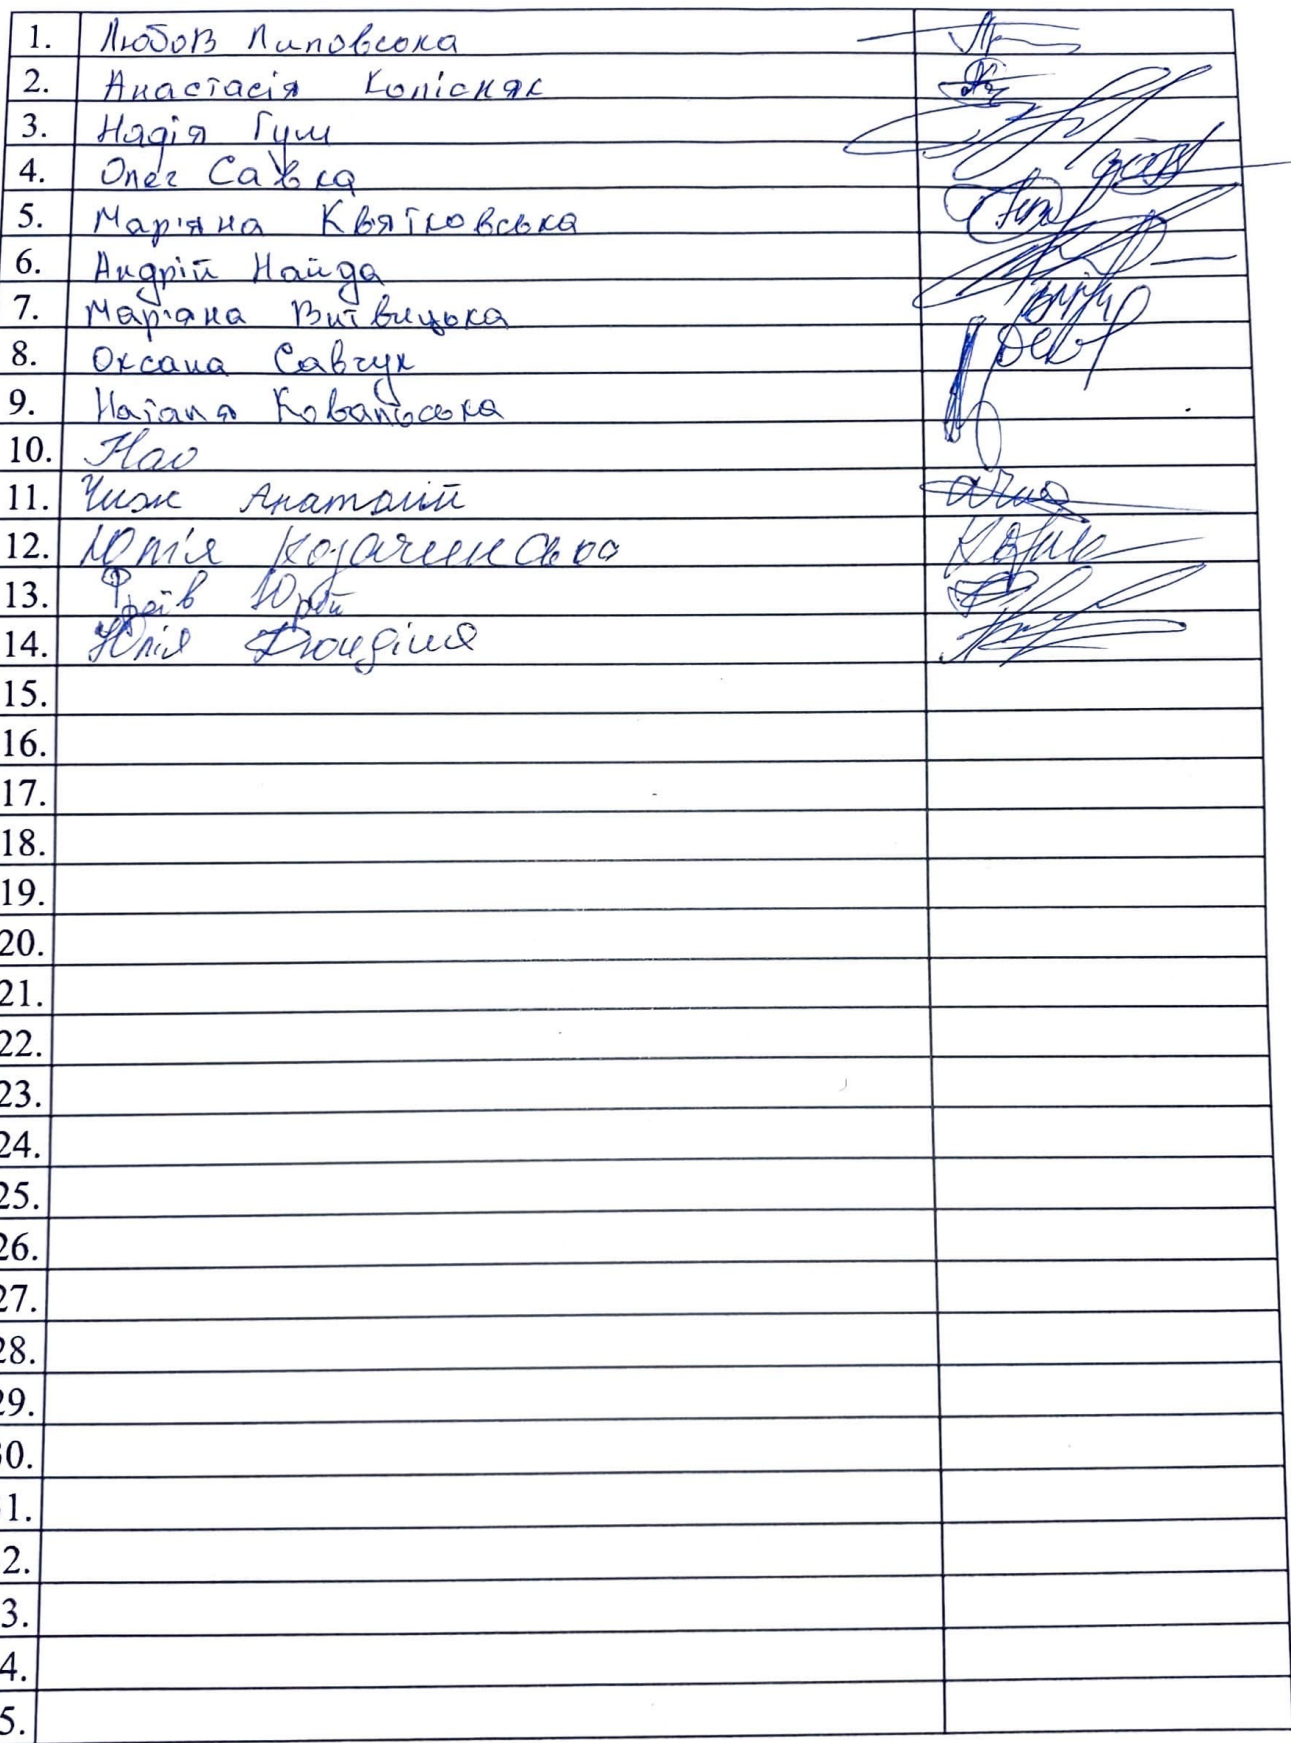 1. Любов Липовська
2. Анастасія Колісняк
3. Надія Гум
4. Олег Савка
5. Мар'яна Квятковська
6. Андрій Найда
7. Мар'яна Витвицька
8. Оксана Савчук
9. Наталя Ковальська
10.
11. Чиж Анатолій
12. Юлія Козачинська
13. Юрій
14. Юлія
15.
16.
17.
18.
19.
20.
21.
22.
23.
24.
25.
26.
27.
28.
29.
30.
1.
2.
3.
4.
5.